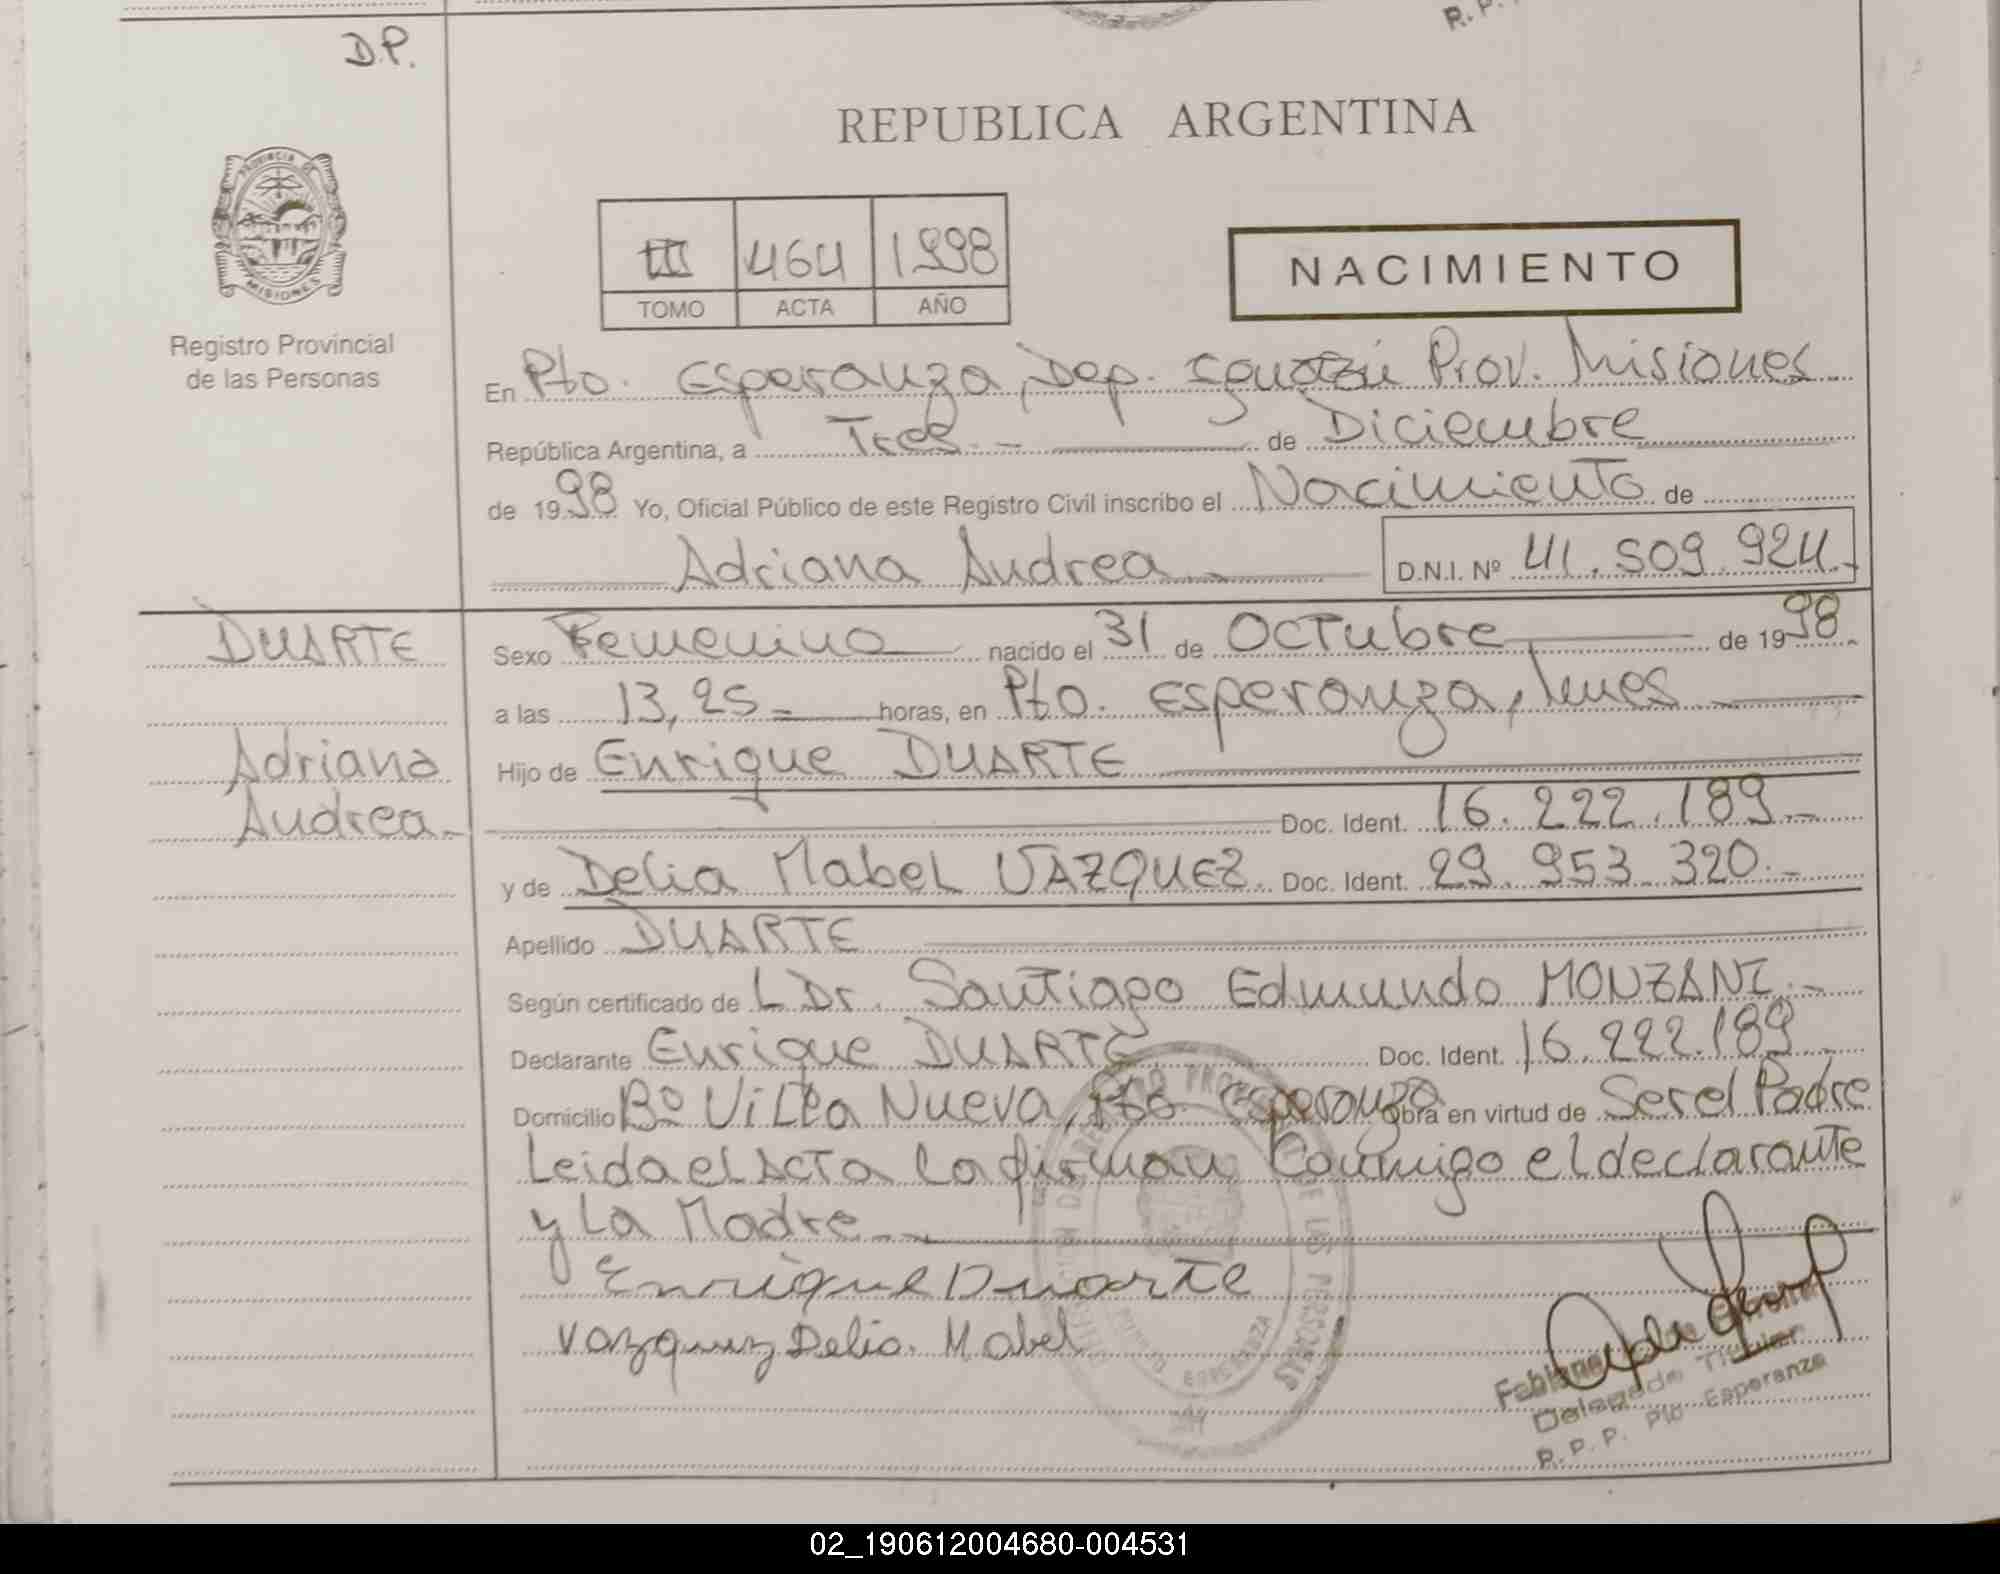 D.P.
REPUBLICA ARGENTINA
PROVINCIA DE
MISIONES
Registro Provincial
de las Personas
III 464 1998
TOMO ACTA AÑO
NACIMIENTO
En Pto. Esperanza, Dep. Iguazú Prov. Misiones
República Argentina, a Tres.- de Diciembre
de 1998 Yo, Oficial Público de este Registro Civil inscribo el Nacimiento de
Adriana Andrea D.N.I. Nº 41.509.924.-
DUARTE
Adriana
Andrea.-
Sexo Femenino nacido el 31 de Octubre de 1998
a las 13,25 horas, en Pto. Esperanza, Mnes
Hijo de Enrique DUARTE
Doc. Ident. 16.222.189.-
y de Delia Mabel VAZQUEZ. Doc. Ident. 29.953.320.-
Apellido DUARTE
Según certificado de Dr. Santiago Edmundo MONZANI.-
Declarante Enrique DUARTE Doc. Ident. 16.222.189.-
Domicilio Bº Villa Nueva, Pto. Esperanza obra en virtud de Ser el Padre
Leida el Acta la firman Conmigo el declarante
y La Madre.-
Enrique Duarte
Vazquez Delia. Mabel
Delegado Titular
R.P.P. Pto Esperanza
02_190612004680-004531